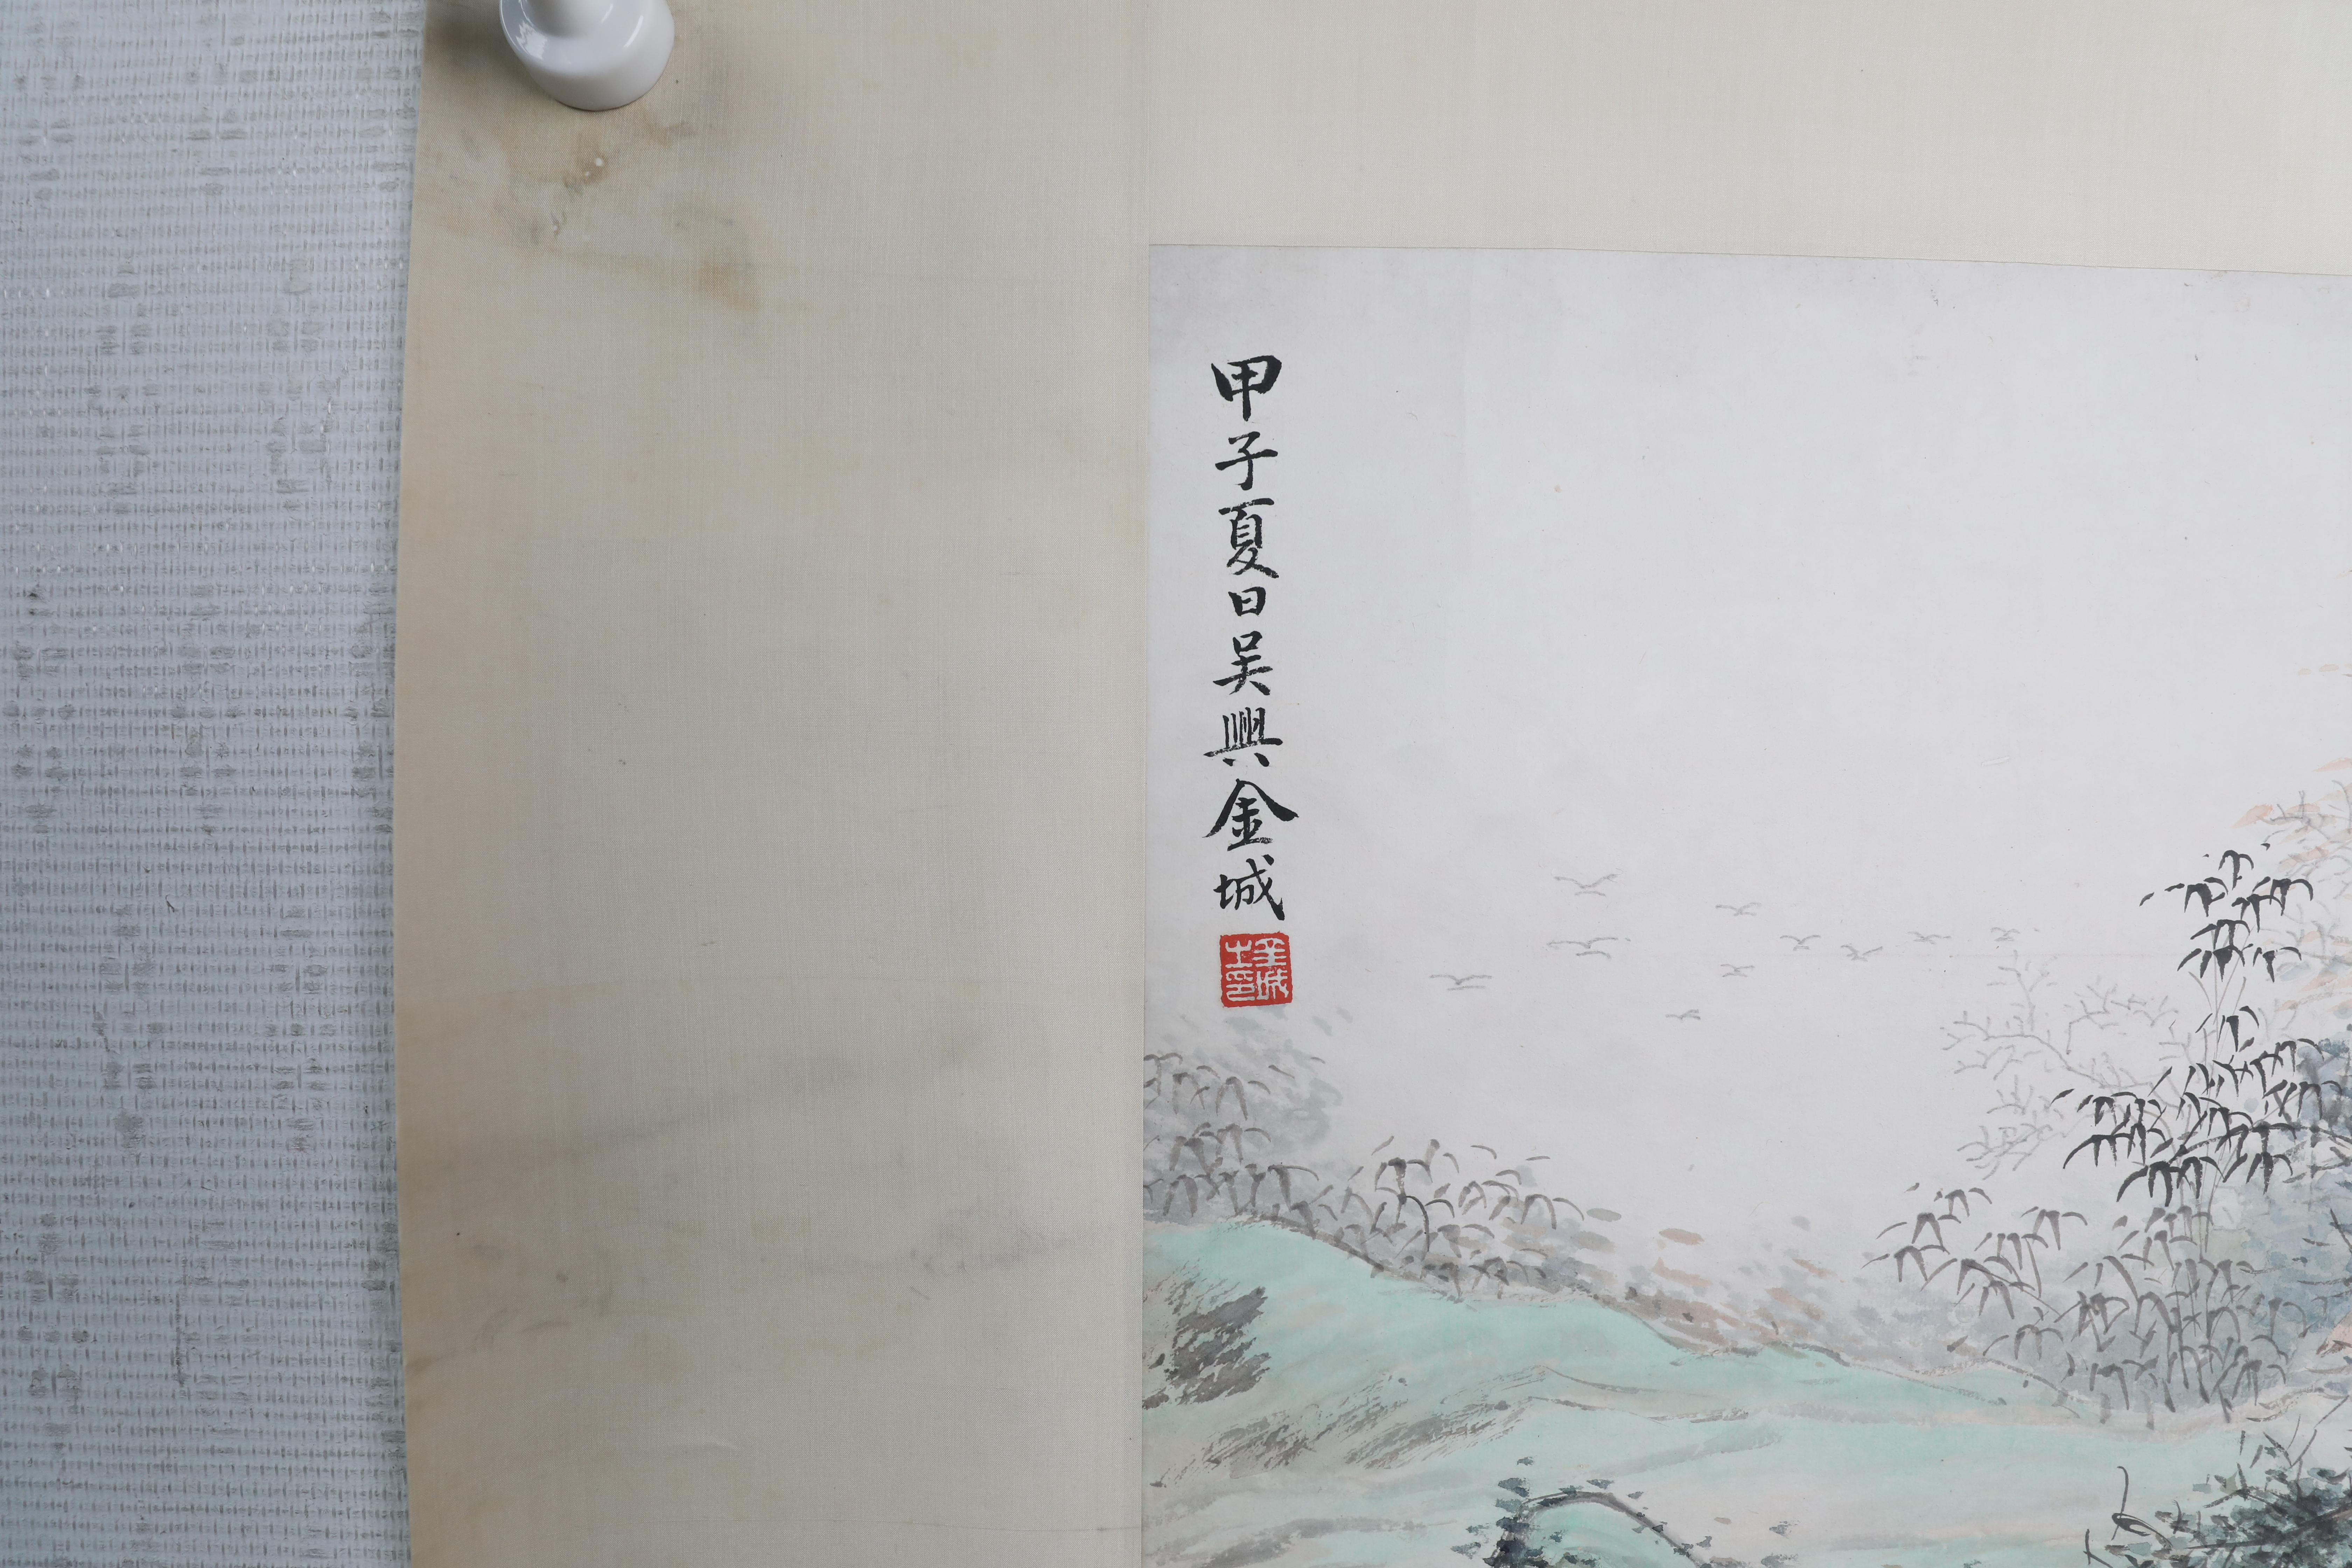 甲子夏日吳興金城
金城之印